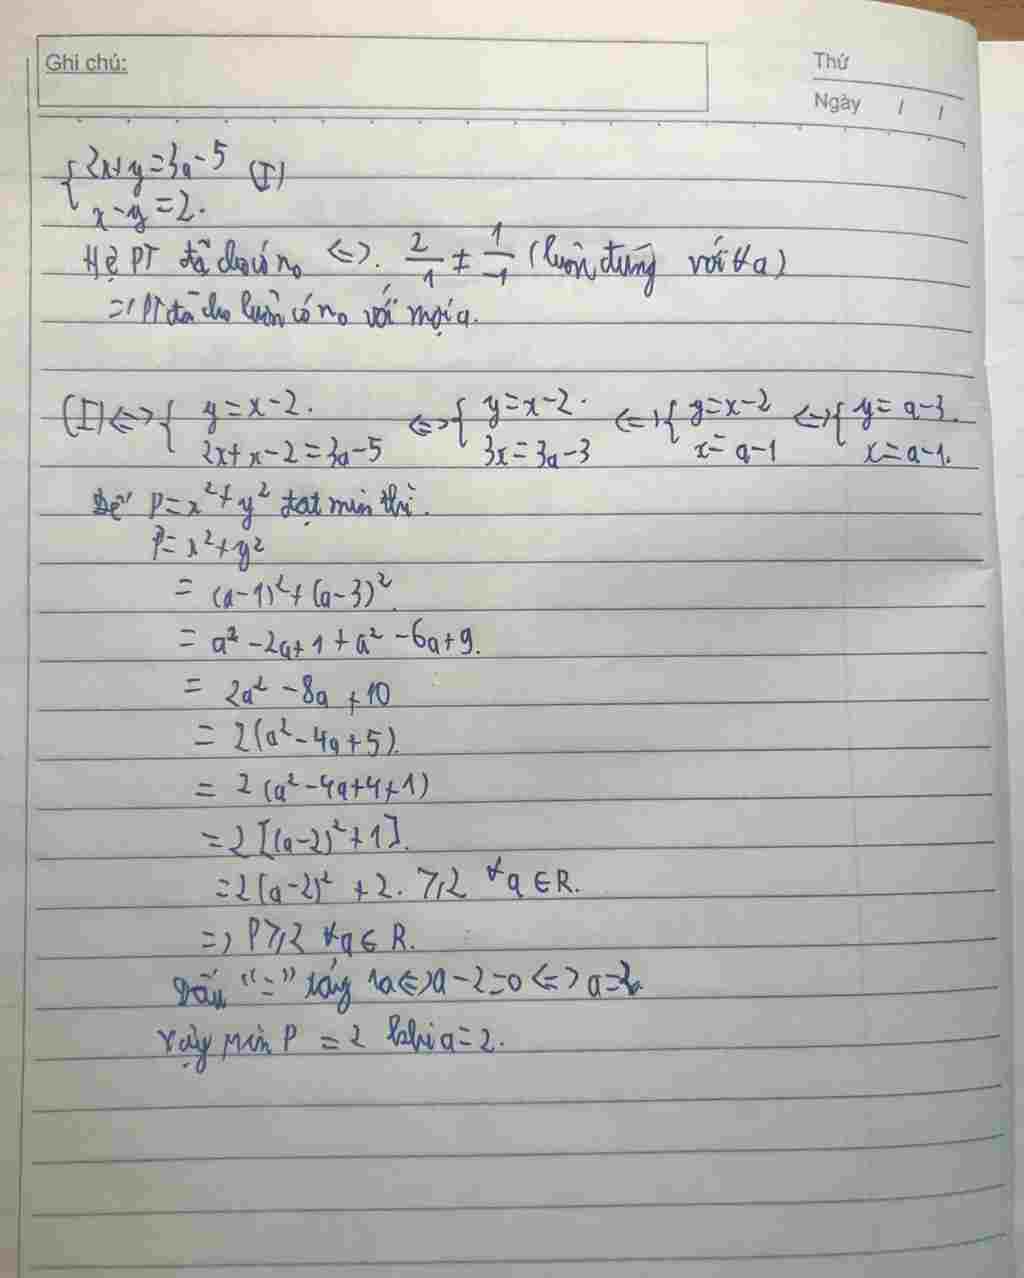 Ghi chú:
Thứ
Ngày / /
{ 2x+y=3a-5 (I)
x-y=2.
Hệ PT đã cho có n₀ <=>. 2/1 ≠ 1/-1 (luôn đúng với ∀a)
=> PT đã cho luôn có n₀ với mọi a.
(I) <=> { y=x-2. <=> { y=x-2. <=> { y=x-2 <=> { y=a-3.
2x+x-2=3a-5 3x=3a-3 x=a-1 x=a-1.
Để P=x²+y² đạt min thì.
P=x²+y²
= (a-1)²+(a-3)²
= a²-2a+1+a²-6a+9.
= 2a²-8a+10
= 2(a²-4a+5).
= 2(a²-4a+4+1)
=2[(a-2)²+1].
=2(a-2)²+2. ⩾2 ∀a∈R.
=> P⩾2 ∀a∈R.
Dấu "=" xảy ra <=> a-2=0 <=> a=2
Vậy Min P = 2 khi a=2.